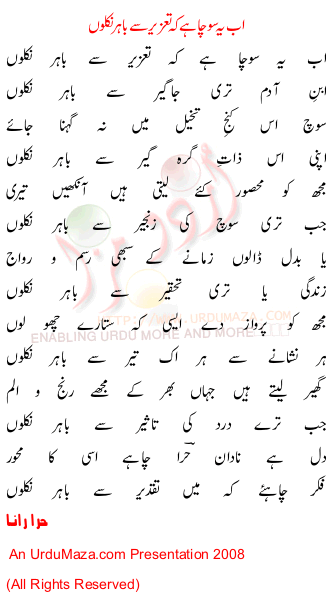 اب یہ سوچا ہے کہ تعزیر سے باہر نکلوں
اب یہ سوچا ہے کہ تعزیر سے باہر نکلوں
ابنِ آدم تری جاگیر سے باہر نکلوں
سوچ اس کنجِ تخیل میں نہ گہنا جائے
اپنی اس ذات گرہ گیر سے باہر نکلوں
مجھ کو محصور کئے لیتی ہیں آنکھیں تیری
جب تری سوچ کی زنجیر سے باہر نکلوں
یا بدل ڈالوں زمانے کے سبھی رسم و رواج
زندگی یا تری تحقیر سے باہر نکلوں
مجھ کو پرواز دے ایسی کہ ستارے چھو لوں
ہر نشانے سے ہر اک تیر سے باہر نکلوں
گھیر لیتے ہیں جہاں بھر کے مجھے رنج و الم
جب ترے درد کی تاثیر سے باہر نکلوں
دل ہے نادان حرا چاہے اسی کا محور
فکر چاہئے کہ میں تقدیر سے باہر نکلوں
حرا رانا
اردو مزا
HTTP://WWW.URDUMAZA.COM
ENABLING URDU MORE AND MORE
An UrduMaza.com Presentation 2008
(All Rights Reserved)